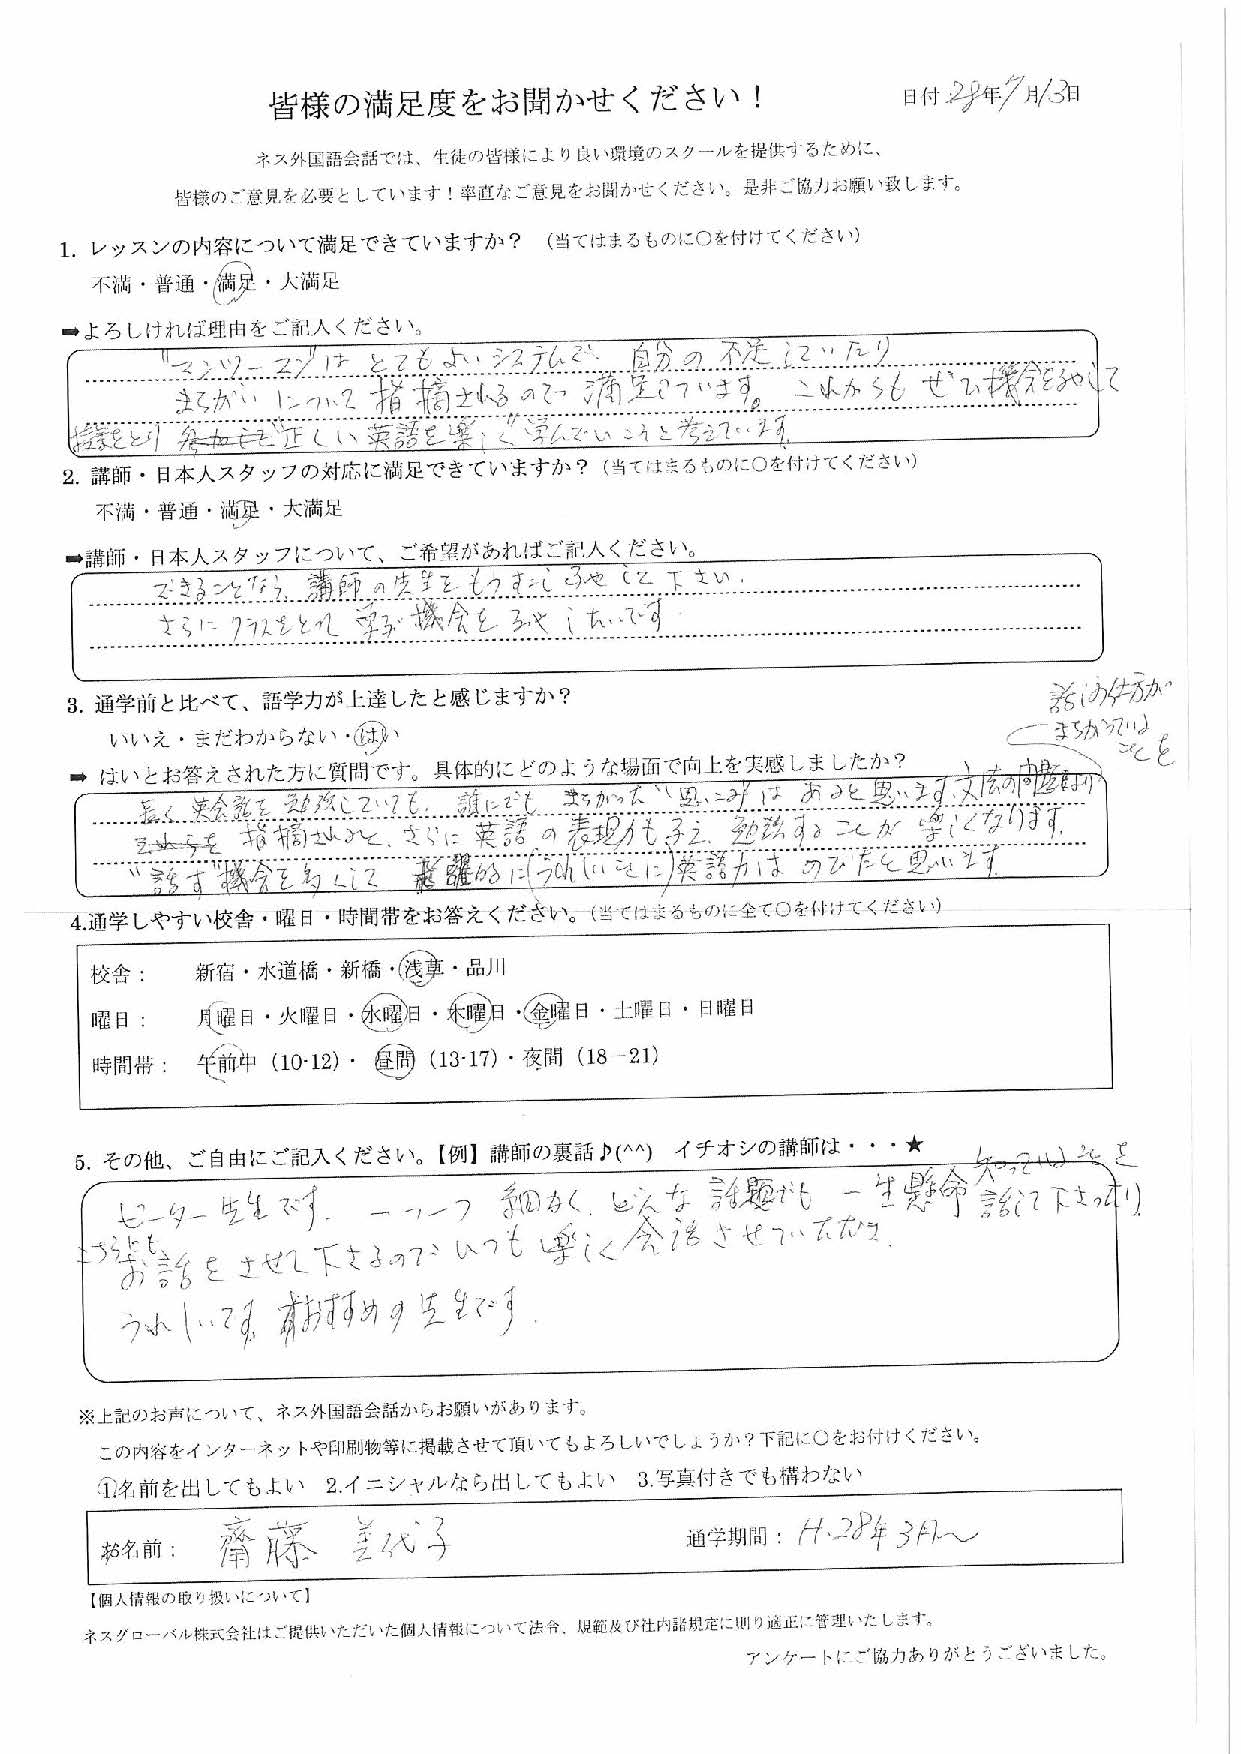 皆様の満足度をお聞かせください！
日付 28年7月13日
ネス外国語会話では、生徒の皆様により良い環境のスクールを提供するために、
皆様のご意見を必要としています！率直なご意見をお聞かせください。是非ご協力お願い致します。
1. レッスンの内容について満足できていますか？ （当てはまるものに〇を付けてください）
不満・普通・満足・大満足
➡よろしければ理由をご記入ください。
"マンツーマン"は とてもよいシステムで、自分の 不足していたり
まちがい について 指摘されるので 満足しています。これからも ぜひ機会をふやして
授業をとり 参加して"正しい 英語を楽しく"学んでいこうと考えています。
2. 講師・日本人スタッフの対応に満足できていますか？（当てはまるものに〇を付けてください）
不満・普通・満足・大満足
➡講師・日本人スタッフについて、ご希望があればご記入ください。
できることなら、講師の先生をもうすこしふやして下さい.
さらにクラスをとって 学ぶ機会を ふや したいです.
3. 通学前と比べて、語学力が上達したと感じますか？
いいえ・まだわからない・はい
話しの仕方が
まちがっている
ことを
➡ はいとお答えされた方に質問です。具体的にどのような場面で向上を実感しましたか？
長く 英会話を 勉強していても、誰にでも まちがった"思いこみ"は あると思います.文法の問題
を 指摘されると、さらに 英語 の表現力も ふえ、勉強することが 楽しくなります.
"話す"機会を多くして 飛躍的に(うれしいことに)英語力は のびたと思います.
4.通学しやすい校舎・曜日・時間帯をお答えください。（当てはまるものに全て〇を付けてください）
校舎： 新宿・水道橋・新橋・浅草・品川
曜日： 月曜日・火曜日・水曜日・木曜日・金曜日・土曜日・日曜日
時間帯： 午前中（10-12）・ 昼間（13-17）・夜間（18－21）
5. その他、ご自由にご記入ください。【例】講師の裏話♪(^^) イチオシの講師は・・・★
知っていることを
ピーター先生です. 一つ一つ 細かく、どんな 話題でも 一生懸命 話して下さったり
こちらにも
お話をさせて下さるので いつも 楽しく会話させていただき.
うれしいです。おすすめの先生です.
※上記のお声について、ネス外国語会話からお願いがあります。
この内容をインターネットや印刷物等に掲載させて頂いてもよろしいでしょうか？下記に〇をお付けください。
1.名前を出してもよい 2.イニシャルなら出してもよい 3.写真付きでも構わない
お名前： 齋藤 美代子
通学期間： H.28年3月〜
【個人情報の取り扱いについて】
ネスグローバル株式会社はご提供いただいた個人情報について法令、規範及び社内諸規定に則り適正に管理いたします。
アンケートにご協力ありがとうございました。